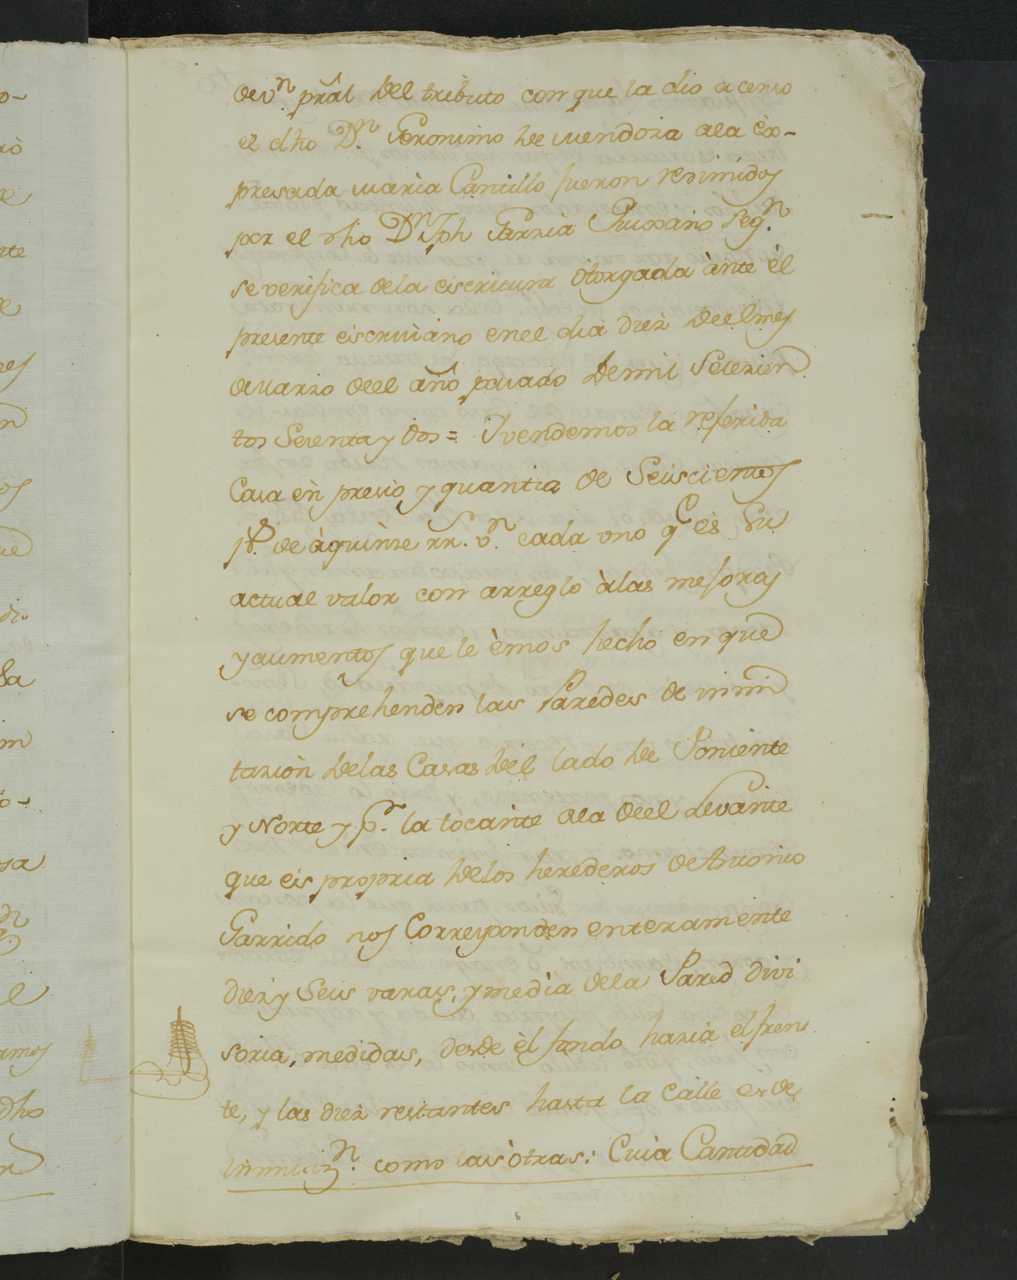 de Vn pràl del tributo con que la dio acenso
el dho Dn Geronimo de mendoza ala èx-
presada maria Cantillo fueron redimidos
por el dho Dn Jph Garzia seg.n
se verifica dela escritura otorgada ànte èl
presente escrivano enel dia diez deel mes
de marzo deel año pasado de mil Setezien
tos Setenta y dos = Y vendemos la referida
Casa èn prezio y quantia de Seiscientos
ps. de àquinze rr.s v.n cada uno q.e ès Su
actual valor con arreglo àlas mejoras
y aumentos que le èmos hecho en que
se comprehenden las Paredes de inmi
tazion delas Casas dèl lado de Poniente
y Norte y p.r la tocante ala deel Levante
que es propria delos herederos de Antonio
Garrido nos Corresponden enteramente
diez y Seis varas, y mèdia dela Pared divi
soria, medidas, desde èl fondo hazia el fren
te, y las diez restantes hasta la Calle es de
inmitaz.n como las òtras: Cuia Cantidad